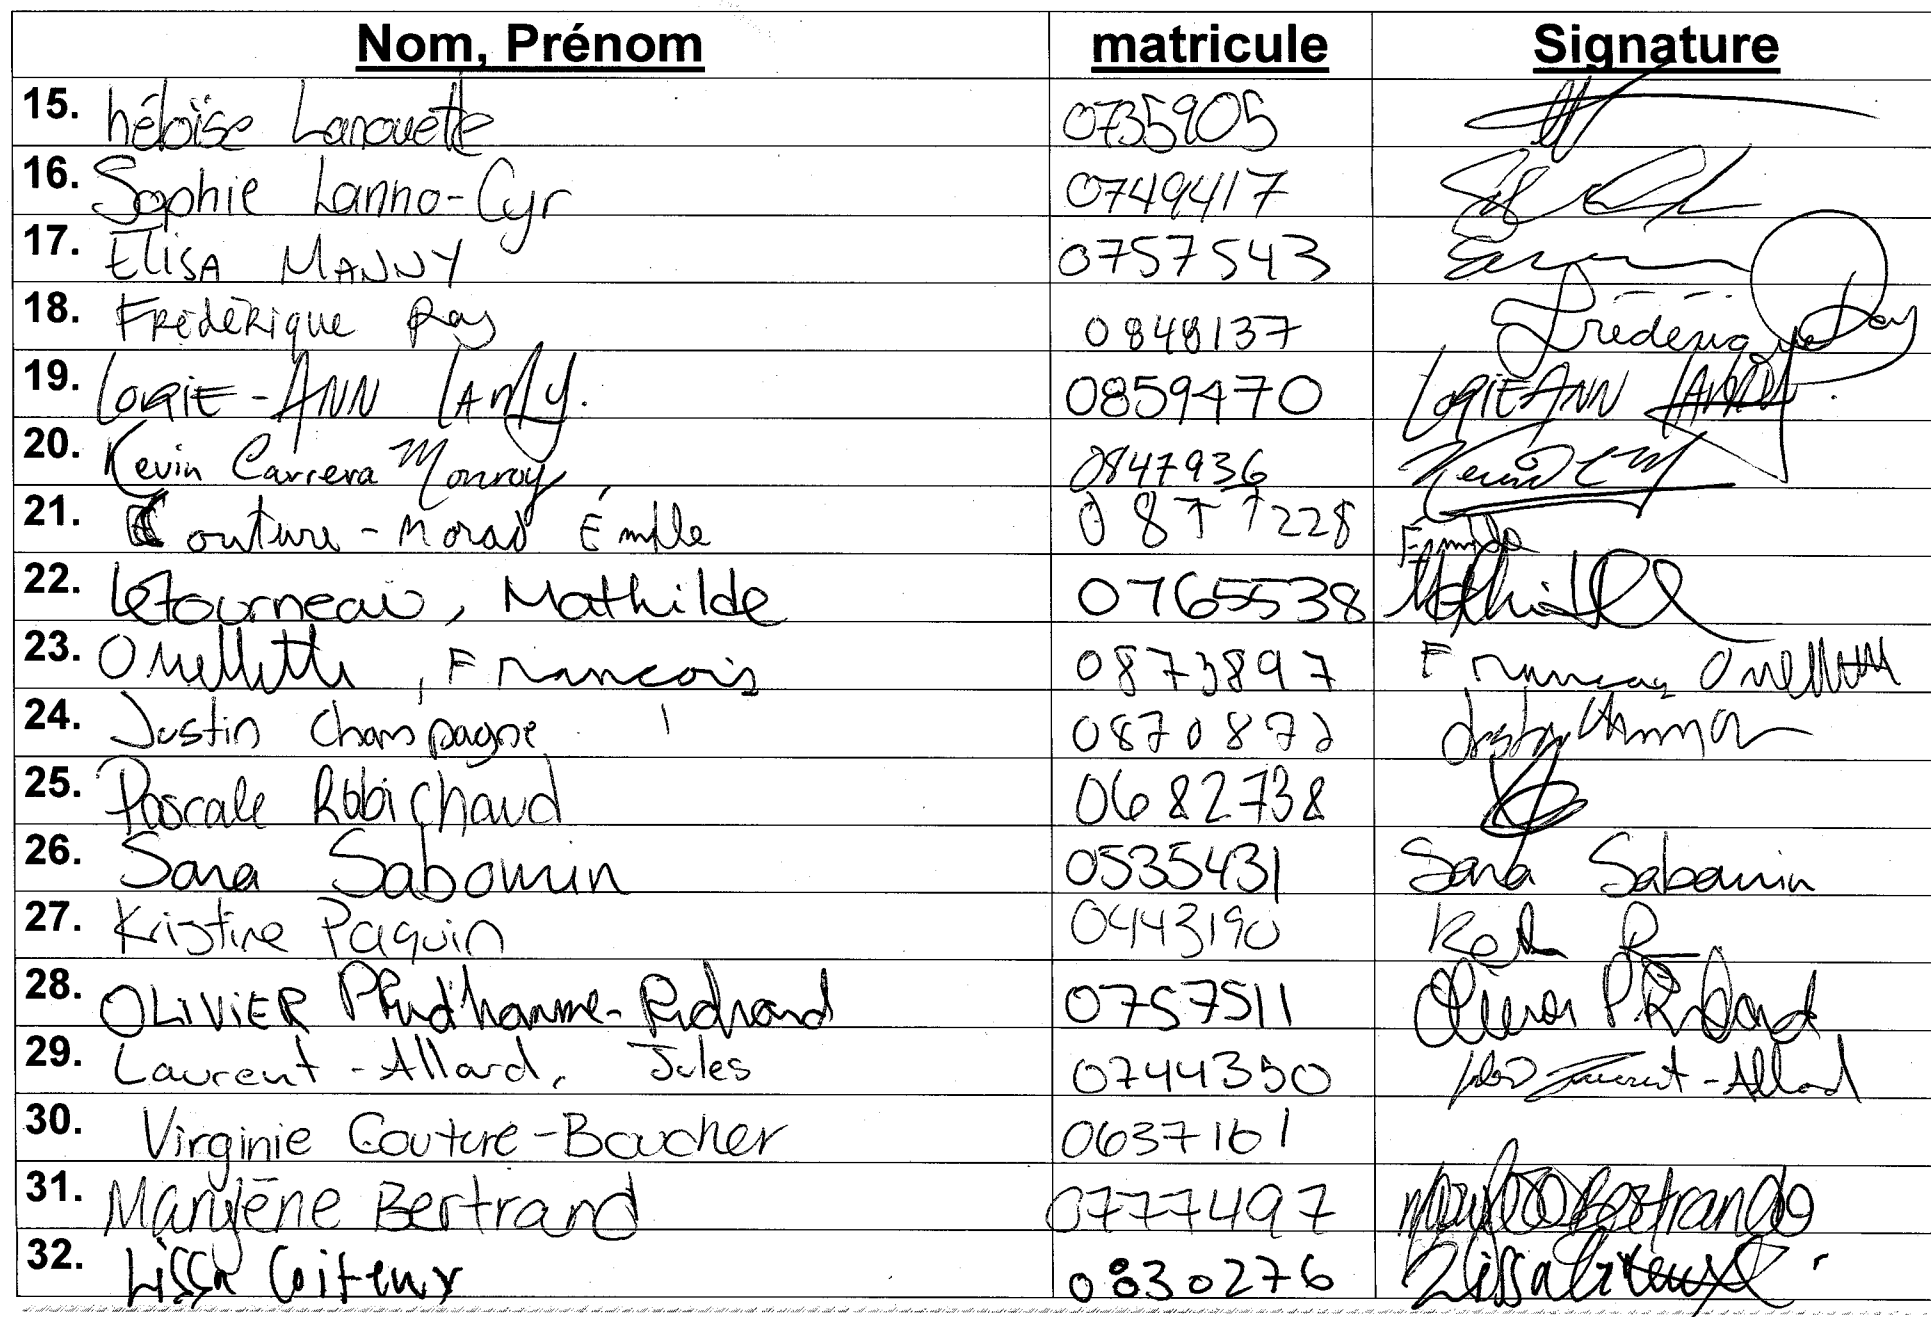 Nom, Prénom matricule Signature
15. héloïse Lanouette 0735905
16. Sophie Lanno-Cyr 0749417
17. Elisa MANNY 0757543
18. Frédérique Roy 0848137 Frédérique Roy
19. LORIE-ANN LAMY. 0859470 LORIE ANN LAMY.
20. Kevin Carrera Monroy 0847936
21. Couture-Morad Émile 0877228 Émile
22. Letourneau, Mathilde 0765538 Mathilde
23. Ouellette, François 0873897 François Ouellette
24. Justin Champagne 0870872
25. Pascale Robichaud 0682738
26. Sara Sabourin 0535431 Sara Sabourin
27. Kristine Paquin 0443190
28. OLIVIER Prud'homme-Richard 0757511
29. Laurent-Allard, Jules 0744350 Jules Laurent-Allard
30. Virginie Couture-Boucher 0637161
31. Marylène Bertrand 0777497 Bertrand
32. Lissa Coiteux 0830276 Lissa Coiteux